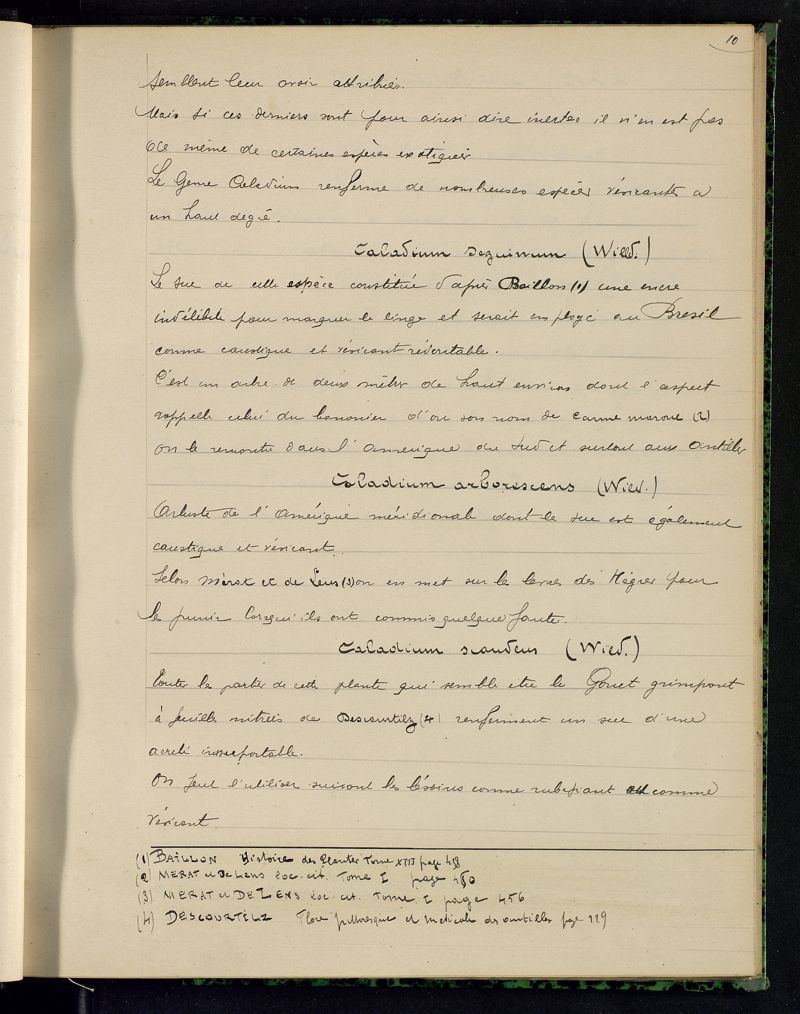 10
semblent leur avoir attribuées.
Mais si ces derniers sont pour ainsi dire inertes il n'en est pas
de même de certaines espèces exotiques
Le Genre Caladium renferme de nombreuses espèces vésicantes à
un haut degré.
Caladium seguinum (Willd.)
Le suc de cette espèce constitue d'après Baillon (1) une encre
indélébile pour marquer le linge et serait employé au Bresil
comme caustique et vésicant révéritable.
C'est un arbre de deux mètres de haut environ dont l'aspect
rappelle celui du bananier d'où son nom de canne marone (2)
On le rencontre dans l'Amérique du Sud et surtout aux Antilles
Caladium arborescens (Wied.)
Arbuste de l'Amérique méridionale dont le suc est également
caustique et vésicant.
Selon Mérat et de Lens (3) on en met sur les lèvres des Nègres pour
les punir lorsqu'ils ont commis quelque faute.
Caladium scandens (Wied.)
Toutes les parties de cette plante qui semble être le Gouet grimpant
à feuilles nitrées de Descourtilz (4) renferment un suc d'une
acreté insupportable.
On peut l'utiliser suivant les besoins comme rubefiant ou comme
vésicant.
(1) BAILLON Histoire des Plantes Tome XIII page 458
(2) MERAT et De Lens loc. cit. Tome I page 450
(3) MERAT et DE LENS loc. cit. Tome I page 456
(4) DESCOURTILZ Flore pittoresque et medicale des antilles page 229